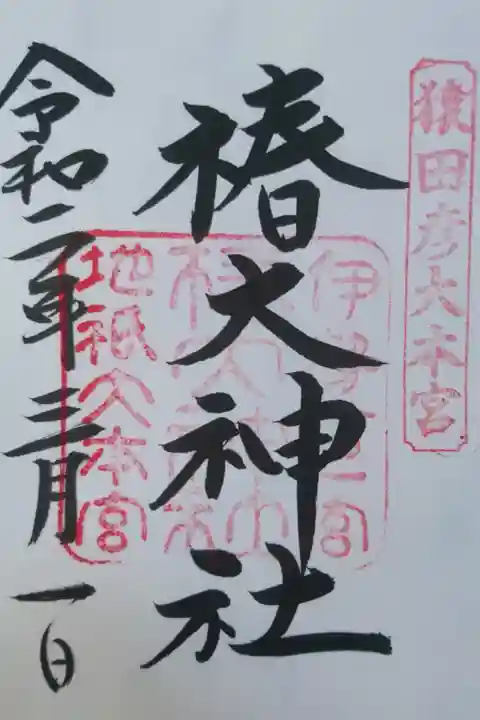 猿田彦大本宮
伊勢一宮
椿大神社
地祇大本宮
令和二年三月一日